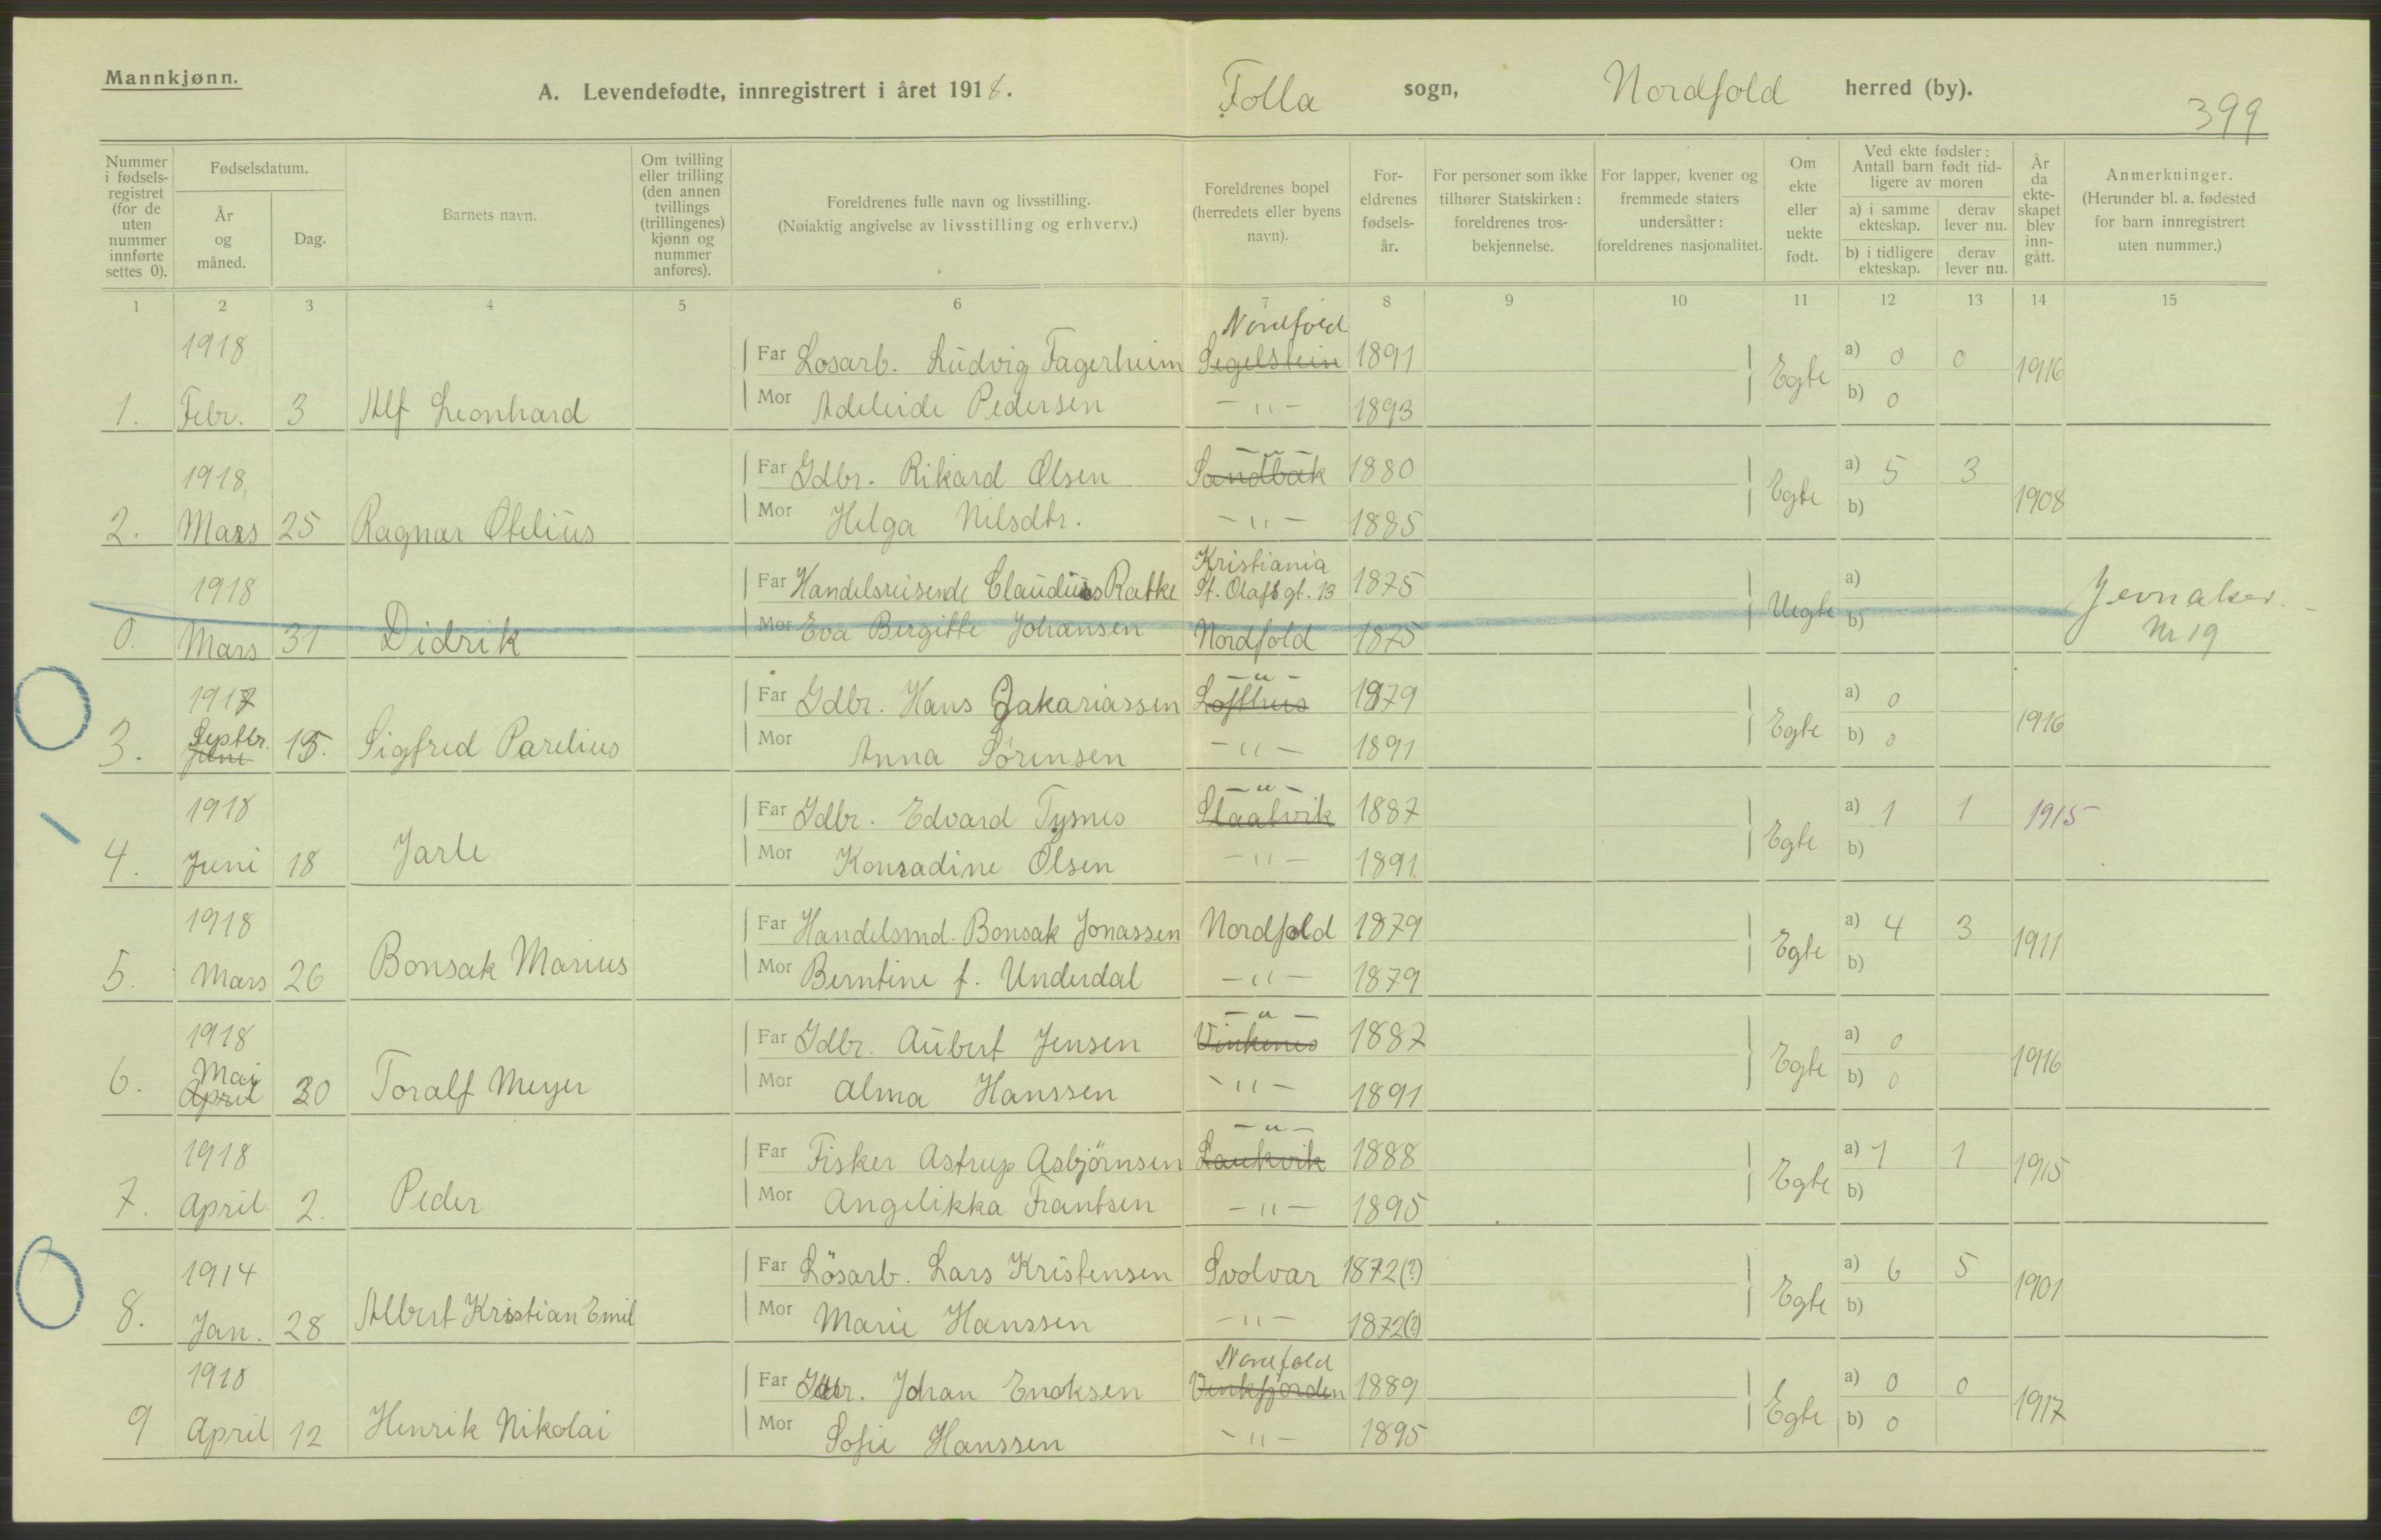 Mannkjønn.
A. Levendefødte, innregistrert i året 1918. Folla sogn, Nordfold herred (by).
399
Nummer i fødsels-registret (for de uten nummer innførte settes 0).
Fødselsdatum.
År og måned.
Dag.
Barnets navn.
Om tvilling eller trilling (den annen tvillings (trillingenes) kjønn og nummer anføres).
Foreldrenes fulle navn og livsstilling.
(Nøiaktig angivelse av livsstilling og erhverv.)
Foreldrenes bopel (herredets eller byens navn).
For-eldrenes fødsels-år.
For personer som ikke tilhører Statskirken: foreldrenes tros-bekjennelse.
For lapper, kvener og fremmede staters undersåtter: foreldrenes nasjonalitet.
Om ekte eller uekte født.
Ved ekte fødsler: Antall barn født tid-ligere av moren
a) i samme ekteskap.
derav lever nu.
b) i tidligere ekteskap.
derav lever nu.
År da ekte-skapet blev inn-gått.
Anmerkninger.
(Herunder bl. a. fødested for barn innregistrert uten nummer.)
1 2 3 4 5 6 7 8 9 10 11 12 13 14 15
Nordfold
1918 Far Losarb. Ludvig Fagerheim Segelstein 1891 Egte a) 0 0 1916
1. Febr. 3 Alf Leonhard Mor Adeleide Pedersen -"- 1893 b) 0
-"-
1918, Far Gdbr. Rikard Olsen Sandbak 1880 Egte a) 5 3 1908
2. Mars 25 Ragnar Otelius Mor Helga Nilsdtr. -"- 1885 b)
Kristiania
1918 Far Handelsreisende Claudius Ratke St. Olafs gt. 13 1875 Uegte a) Jevnaker.
0. Mars 31 Didrik Mor Eva Bergitte Johansen Nordfold 1875 b) Nr 19
-"-
1917 Far Gdbr. Hans Zakariassen Lofthus 1879 Egte a) 0 1916
Septbr.
3. Juni 15. Sigfred Parelius Mor Anna Sörensen -"- 1891 b) 0
-"-
1918 Far Gdbr. Edvard Tysnes Staalvik 1887 Egte a) 1 1 1915
4. Juni 18 Jarle Mor Konradine Olsen -"- 1891 b)
1918 Far Handelsmd. Bonsak Jonassen Nordfold 1879 Egte a) 4 3 1911
5. Mars 26 Bonsak Marius Mor Berntine f. Underdal -"- 1879 b)
-"-
1918 Far Gdbr. Aubert Jensen Vinkenes 1887 Egte a) 0 1916
Mai
6. April 30 Toralf Meyer Mor Alma Hanssen -"- 1891 b) 0
-"-
1918 Far Fisker Astrup Asbjörnsen Laukvik 1888 Egte a) 1 1 1915
7. April 2. Peder Mor Angelikka Frantsen -"- 1895 b)
1914 Far Lösarb. Lars Kristensen Svolvær 1872(?) Egte a) 6 5 1901
8. Jan. 28 Albert Kristian Emil Mor Marie Hanssen -"- 1872(?) b)
Nordfold
1918 Far Gdbr. Johan Enoksen Vinkfjorden 1889 Egte a) 0 0 1917
9 April 12 Henrik Nikolai Mor Sofie Hanssen -"- 1895 b) 0